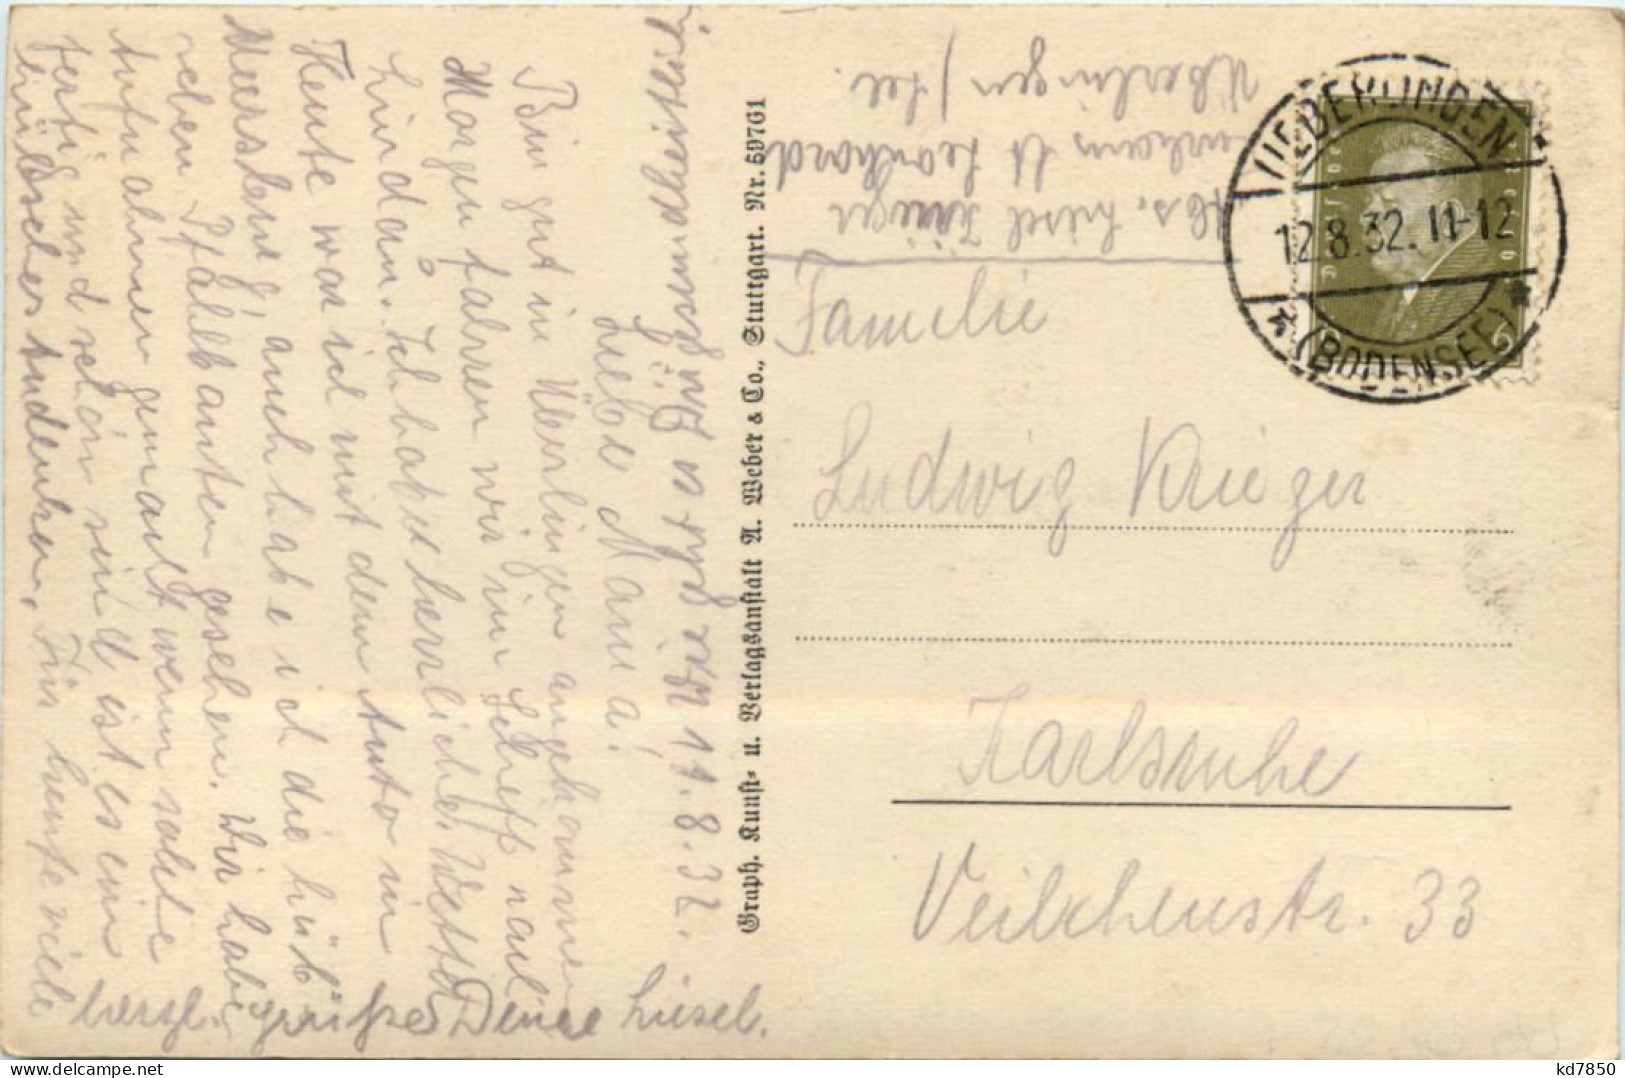 Überlingen 11.8.32.
Liebe Mama!
Bin gut in Überlingen angekommen
Morgen fahren wir im Schiff nach
Lindau. Ich habe herrliches Wetter
Heute war ich mit dem Auto in
Meersburg auch habe ich die hüb-
schen Pfahlbauten gesehen. Wir haben
Aufnahmen gemacht wenn sie
fertig und schön sind ist es ein
hübsches Andenken. Für heute viele
herzl. grüße Deine Liesel.
Graph. Kunst- u. Verlagsanstalt A. Weber & Co., Stuttgart. Nr. 69761
Abs. Liesel Krieger
St Leonhard
Überlingen / See.
UEBERLINGEN
12.8.32. 11-12
* (BODENSEE) *
6
Familie
Ludwig Krieger
Karlsruhe
Veilchenstr. 33
kd7850